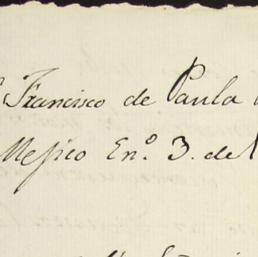 Francisco de Paula
Mexico En.º 3. de